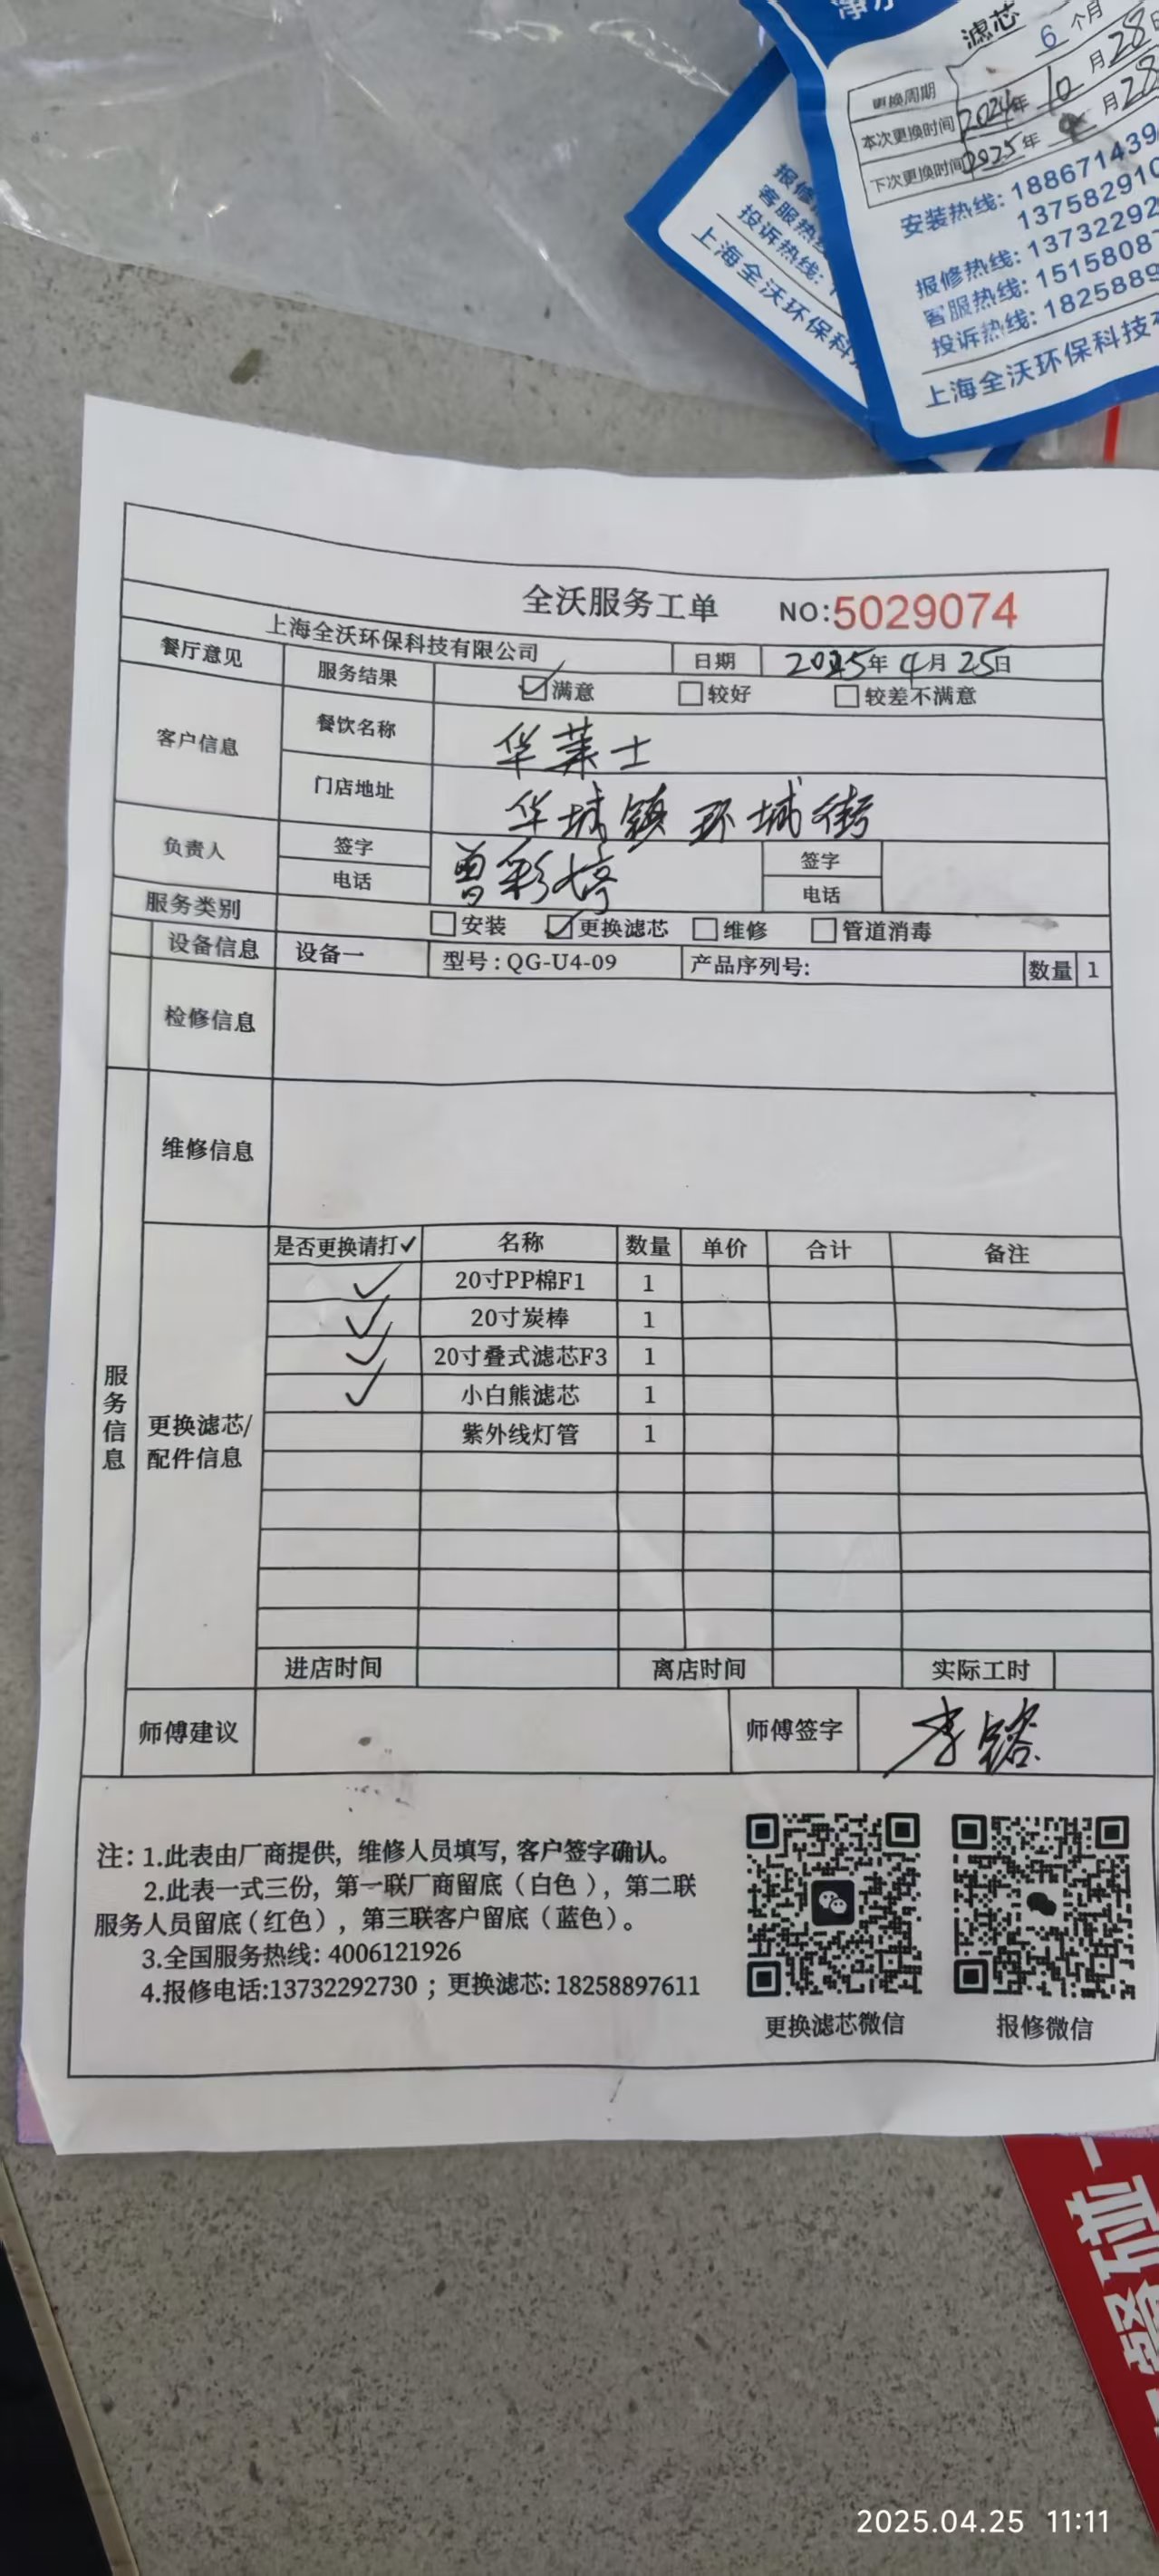 净水
滤芯
更换周期 6 个月
本次更换时间 2024年 10 月 28日
下次更换时间 2025年 月 28
安装热线: 188671439
13758291
报修热线: 13732292
客服热线: 1515808
投诉热线: 1825889
上海全沃环保科技有
报修
客服热线
投诉热线:
上海全沃环保科技
全沃服务工单 NO:5029074
上海全沃环保科技有限公司 日期 2025年 4月 25日
餐厅意见 服务结果 满意 较好 较差不满意
客户信息 餐饮名称 华莱士
门店地址 华城镇环城街
负责人 签字 曾彩婷 签字
电话 电话
服务类别 安装 更换滤芯 维修 管道消毒
设备信息 设备一 型号:QG-U4-09 产品序列号: 数量 1
检修信息
维修信息
服务信息
更换滤芯/
配件信息
是否更换请打✓ 名称 数量 单价 合计 备注
✓ 20寸PP棉F1 1
✓ 20寸炭棒 1
✓ 20寸叠式滤芯F3 1
✓ 小白熊滤芯 1
紫外线灯管 1
进店时间 离店时间 实际工时
师傅建议 师傅签字 李
注: 1.此表由厂商提供, 维修人员填写, 客户签字确认。
2.此表一式三份, 第一联厂商留底(白色), 第二联
服务人员留底(红色), 第三联客户留底(蓝色)。
3.全国服务热线: 4006121926
4.报修电话:13732292730 ; 更换滤芯: 18258897611
更换滤芯微信 报修微信
2025.04.25 11:11